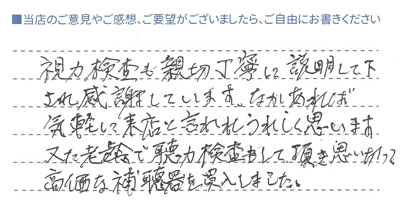 ■当店のご意見やご感想、ご要望がございましたら、ご自由にお書きください
視力検査も親切丁寧に説明して下
され感謝しています。なにかあれば
気軽に来店と言われうれしく思います
又た老齢で聴力検査もして頂き思い切って
高価な補聴器を買入しました。